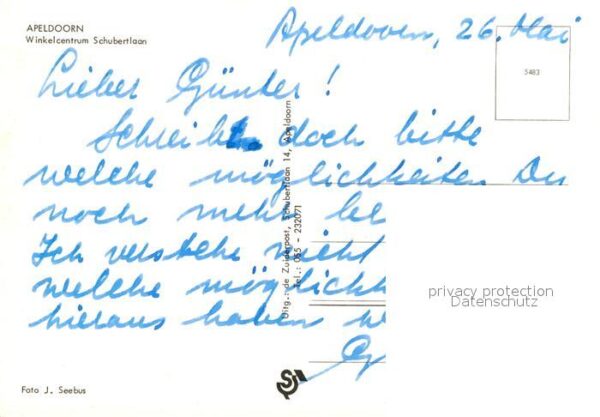 APELDOORN
Winkelcentrum Schubertlaan
Apeldoorn, 26. Mai
5483
Lieber Günter!
Schreibe doch bitte
welche möglichkeiten Du
noch mehr
Ich verstehe nicht
welche möglichk
hieraus haben
Uitg.: de Zuiderpost, Schubertlaan 14, Apeldoorn
Tel.: 055 - 232071
privacy protection
Datenschutz
Foto J. Seebus